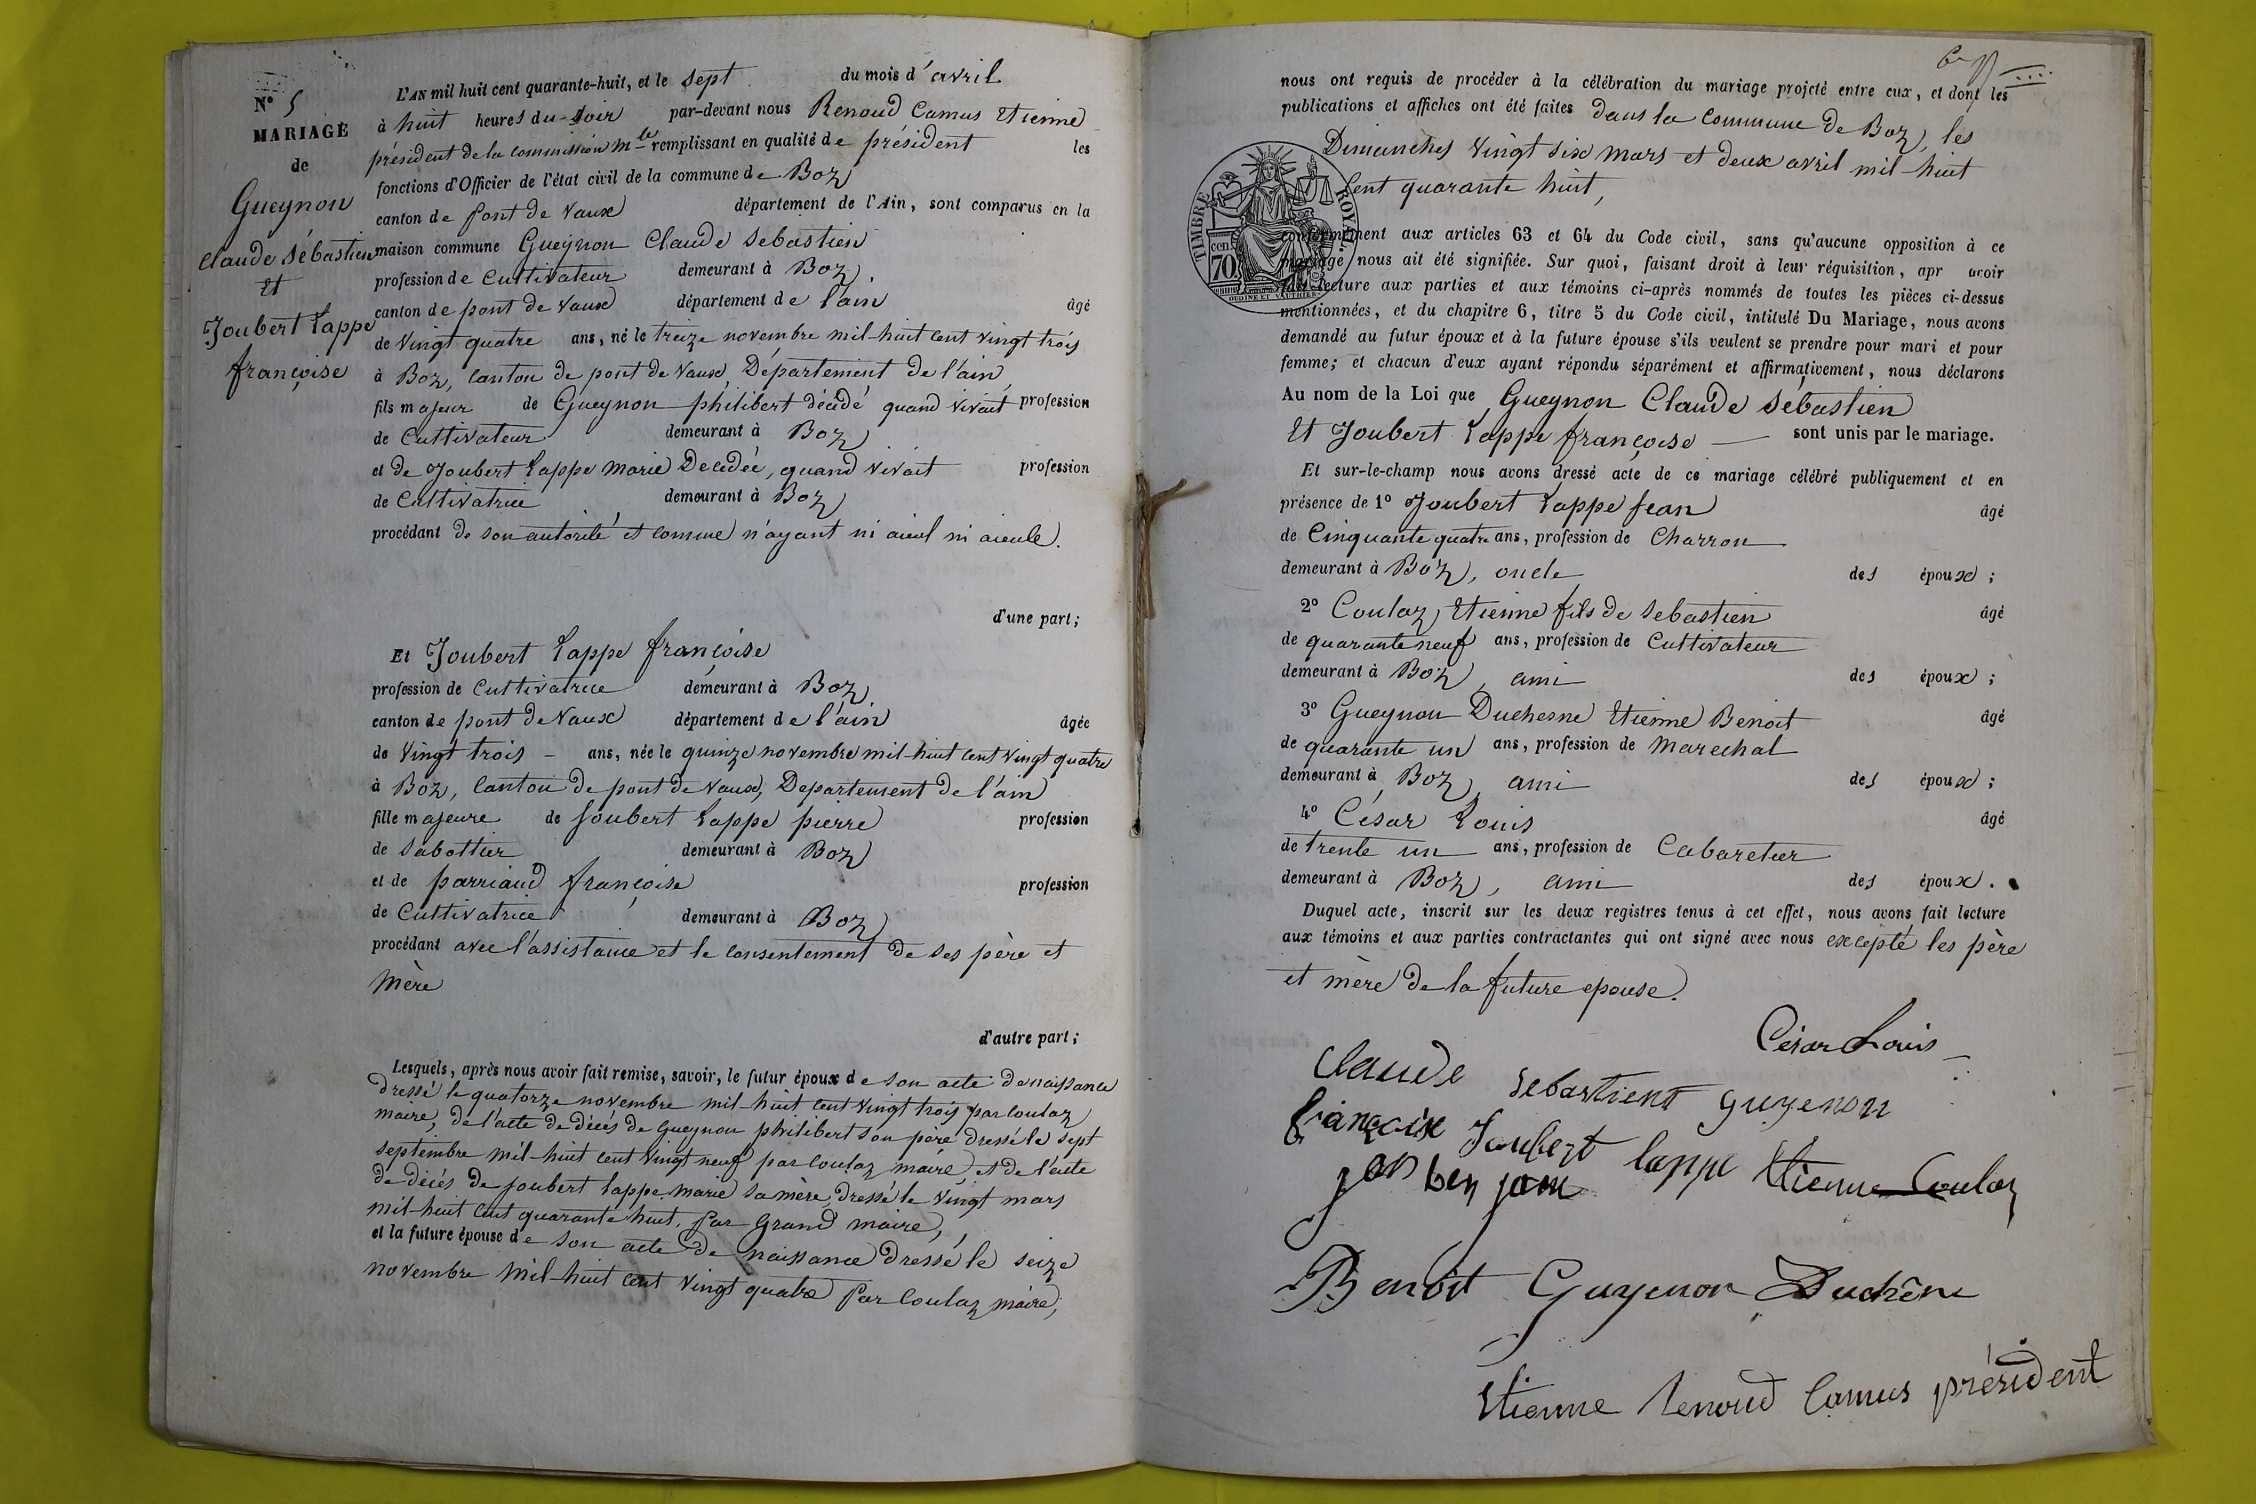 N° 5
MARIAGE
de
Gueynon
Claude Sébastien
Et
Joubert Lappe
françoise
L'AN mil huit cent quarante-huit, et le sept du mois d'avril
à huit heures du soir par-devant nous Renoud Camus Etienne
président de la commission mle remplissant en qualité de président les
fonctions d'Officier de l'état civil de la commune de Boz
canton de pont de Vaux département de l'Ain, sont comparus en la
maison commune Gueynon Claude Sebastien
profession de Cultivateur demeurant à Boz,
canton de pont de Vaux département de l'ain âgé
de Vingt quatre ans, né le treize novembre mil-huit cent vingt trois
à Boz, canton de pont de Vaux, Département de l'ain,
fils majeur de Gueynon philibert décédé quand vivait profession
de Cultivateur demeurant à Boz
et de Joubert Lappe Marie Decédée, quand vivait profession
de Cultivatrice demeurant à Boz
procédant de son autorité et comme n'ayant ni aieul ni aieule.
d'une part;
Et Joubert Lappe françoise
profession de Cultivatrice demeurant à Boz
canton de pont de Vaux département de l'ain âgée
de Vingt trois - ans, née le quinze novembre mil-huit cent vingt quatre
à Boz, Canton de pont de Vaux, Departement de l'ain
fille majeure de Joubert Lappe pierre profession
de Sabottier demeurant à Boz
et de parriaud françoise profession
de Cultivatrice demeurant à Boz
procédant avec l'assistance et le consentement de ses père et
Mère
d'autre part;
Lesquels, après nous avoir fait remise, savoir, le futur époux de son acte de naissance
dressé le quatorze novembre mil-huit cent vingt trois par Coulaz
maire, de l'acte de décés de Gueynon philibert son père dressé le sept
septembre mil-huit cent vingt neuf par Coulaz maire, et de l'acte
de décés de Joubert Lappe Marie sa mère, dressé le vingt mars
mil-huit cent quarante huit, par Grand maire,
et la future épouse de son acte de naissance dressé le seize
novembre mil-huit cent vingt quatre par Coulaz maire,
nous ont requis de procéder à la célébration du mariage projeté entre eux, et dont les
publications et affiches ont été faites dans la Commune de Boz, les
Dimanches vingt six Mars et deux avril mil-huit
Cent quarante huit,
TIMBRE ROYAL
cen. 70
OUDINÉ ET VAUTHIER
conformément aux articles 63 et 64 du Code civil, sans qu'aucune opposition à ce
mariage nous ait été signifiée. Sur quoi, faisant droit à leur réquisition, apr avoir
fait lecture aux parties et aux témoins ci-après nommés de toutes les pièces ci-dessus
mentionnées, et du chapitre 6, titre 5 du Code civil, intitulé Du Mariage, nous avons
demandé au futur époux et à la future épouse s'ils veulent se prendre pour mari et pour
femme; et chacun d'eux ayant répondu séparément et affirmativement, nous déclarons
Au nom de la Loi que Gueynon Claude Sébastien
Et Joubert Lappe françoise — sont unis par le mariage.
Et sur-le-champ nous avons dressé acte de ce mariage célébré publiquement et en
présence de 1° Joubert Lappe Jean âgé
de Cinquante quatre ans, profession de Charron
demeurant à Boz, oncle des époux;
2° Coulaz Etienne fils de Sebastien âgé
de quarante neuf ans, profession de Cultivateur
demeurant à Boz, ami des époux;
3° Gueynon Duchesne Etienne Benoit âgé
de quarante un ans, profession de Marechal
demeurant à Boz, ami des époux;
4° César Louis âgé
de trente un ans, profession de Cabaretier
demeurant à Boz, ami des époux.
Duquel acte, inscrit sur les deux registres tenus à cet effet, nous avons fait lecture
aux témoins et aux parties contractantes qui ont signé avec nous excepté les père
et mère de la future epouse.
César Louis
Claude Sebastient guyenon
françoise Joubert lappe Etienne Coulaz
Benoit Guyenon Duchêne
Etienne Renoud Camus président